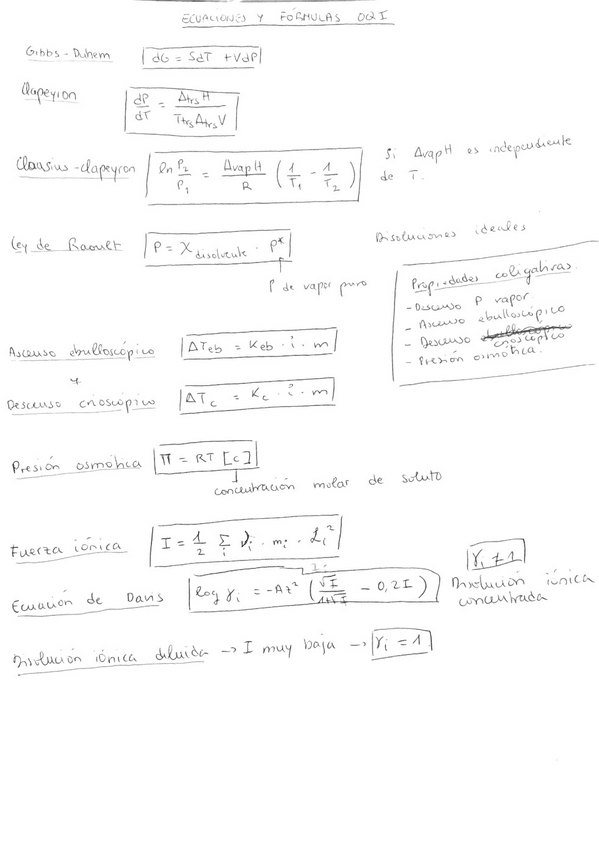 ECUACIONES Y FÓRMULAS OQI
Gibbs-Duhem dG = SdT + VdP
Clapeyron dP/dT = Δtrs H / Ttrs Δtrs V
Clausius-Clapeyron ln P2/P1 = Δvap H / R (1/T1 - 1/T2) Si Δvap H es independiente de T.
Ley de Raoult P = X disolvente · P* Disoluciones ideales
↑
P de vapor puro
Propiedades coligativas.
- Descenso P vapor
- Ascenso ebulloscópico
- Descenso crioscópico
- Presión osmótica.
Ascenso ebulloscópico ΔTeb = Keb · i · m
y
Descenso crioscópico ΔTc = Kc · i · m
Presión osmótica Π = RT [c]
↓
concentración molar de soluto
Fuerza iónica I = 1/2 Σi νi · mi · Zi²
Ecuación de Davis log γi = -Az² (√I / 1+√I - 0,2I) γi ≠ 1
Disolución iónica
concentrada
Disolución iónica diluida → I muy baja → γi = 1